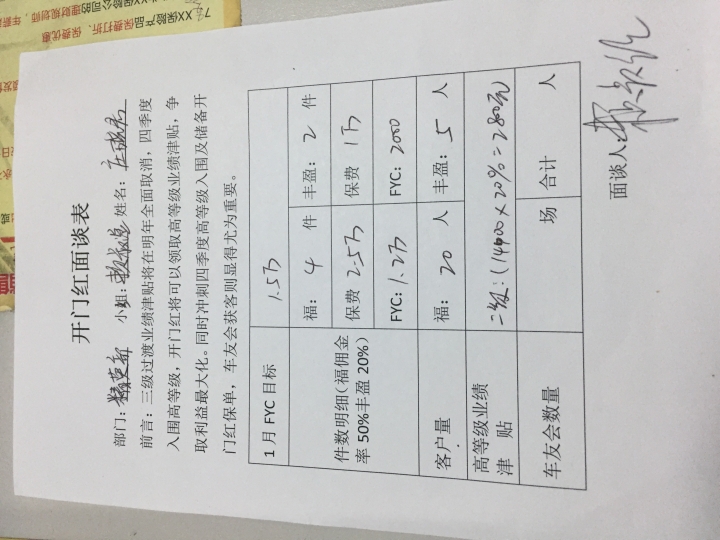 开门红面谈表
部门：精英部 小组： 姓名：
前言：三级过渡业绩津贴将在明年全面取消，四季度
入围高等级，开门红将可以领取高等级业绩津贴，争
取利益最大化。同时冲刺四季度高等级入围及储备开
门红保单，车友会获客则显得尤为重要。
1月FYC目标 1.5万
件数明细（福佣金
率50%丰盈20%）
福：4件 丰盈：2件
保费 2.5万 保费 1万
FYC：1.2万 FYC：2000
客户量 福：20人 丰盈：5人
高等级业绩
津 贴
二级：(14000×20%=2800元
车友会数量 场 合计 人
面谈人：
XX保险公司的
理财规划师，年薪
保险产品、保费打折、保费优惠